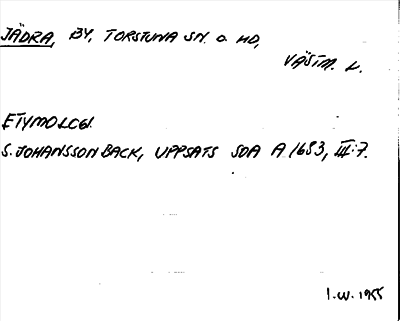 JÄDRA, BY, TORSTUNA SN. O. HD,
VÄSTM. L.
ETYMOLOGI.
S. JOHANSSON BACK, UPPSATS SOA A 1683, III:7.
I.W. 1955